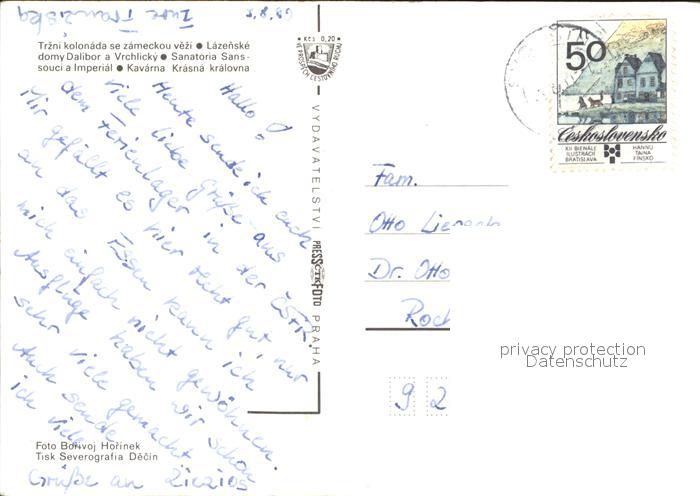 Tržní kolonáda se zámeckou věží ● Lázeňské
domy Dalibor a Vrchlický ● Sanatoria Sans-
souci a Imperiál ● Kavárna Krásná královna
Hallo!
Heute sende ich euch
viele liebe Grüße aus
dem Ferienlager in der ČSFR.
Mir gefällt es hier recht gut nur
an das Essen kann ich
mich einfach nicht gewöhnen.
Ausflüge haben wir schon
sehr viele gemacht
Auch sende
ich viele
Grüße an
Eure Franziska
Foto Bořivoj Hořínek
Tisk Severografia Děčín
Kčs 0,20
VE PROSPĚCH CESTOVNÍHO RUCHU
VYDAVATELSTVÍ PRESSFOTO PRAHA
50
Československo
XII BIENÁLE
ILUSTRÁCIÍ
BRATISLAVA
HANNU
TAINA
FÍNSKO
Fam.
Otto
Dr. Otto
Roch
9 2
privacy protection
Datenschutz